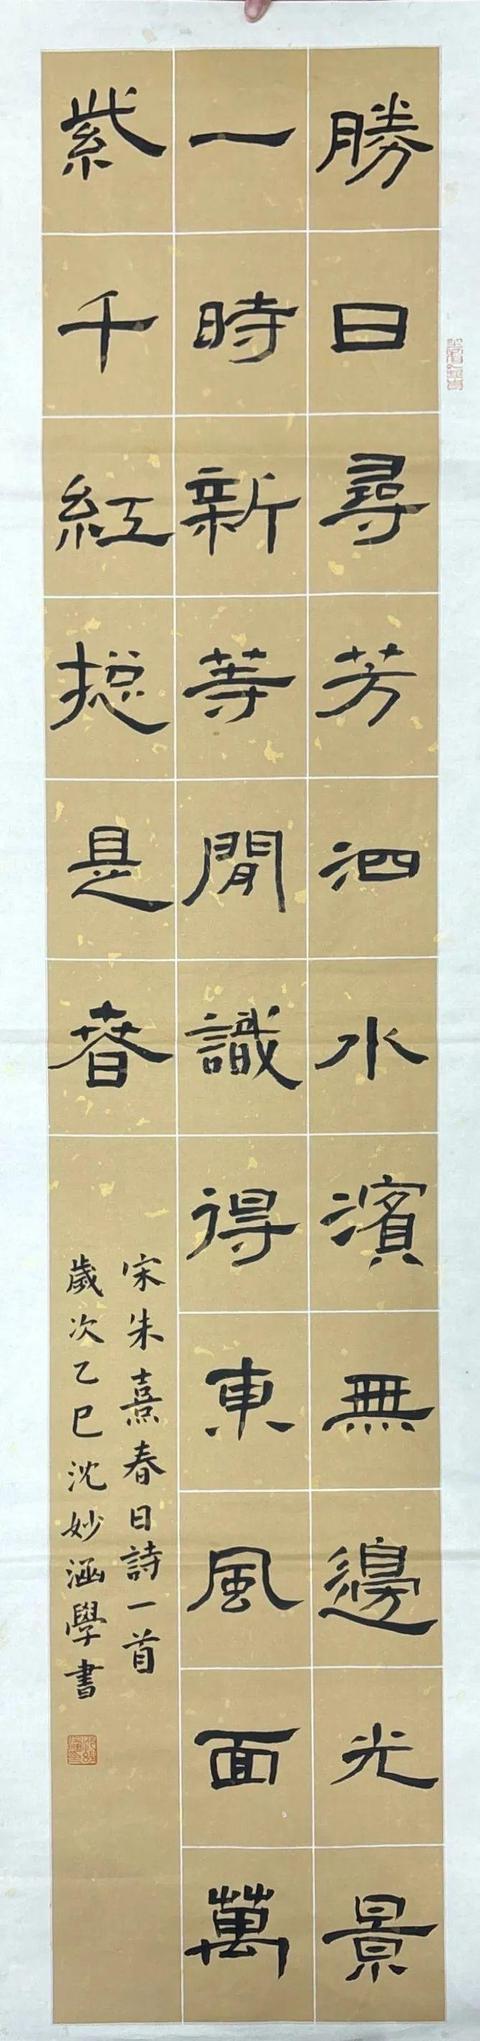 勝日尋芳泗水濱無邊光景
一時新等閒識得東風面萬
紫千紅揔是春
宋朱熹春日詩一首
歲次乙巳沈妙涵學書